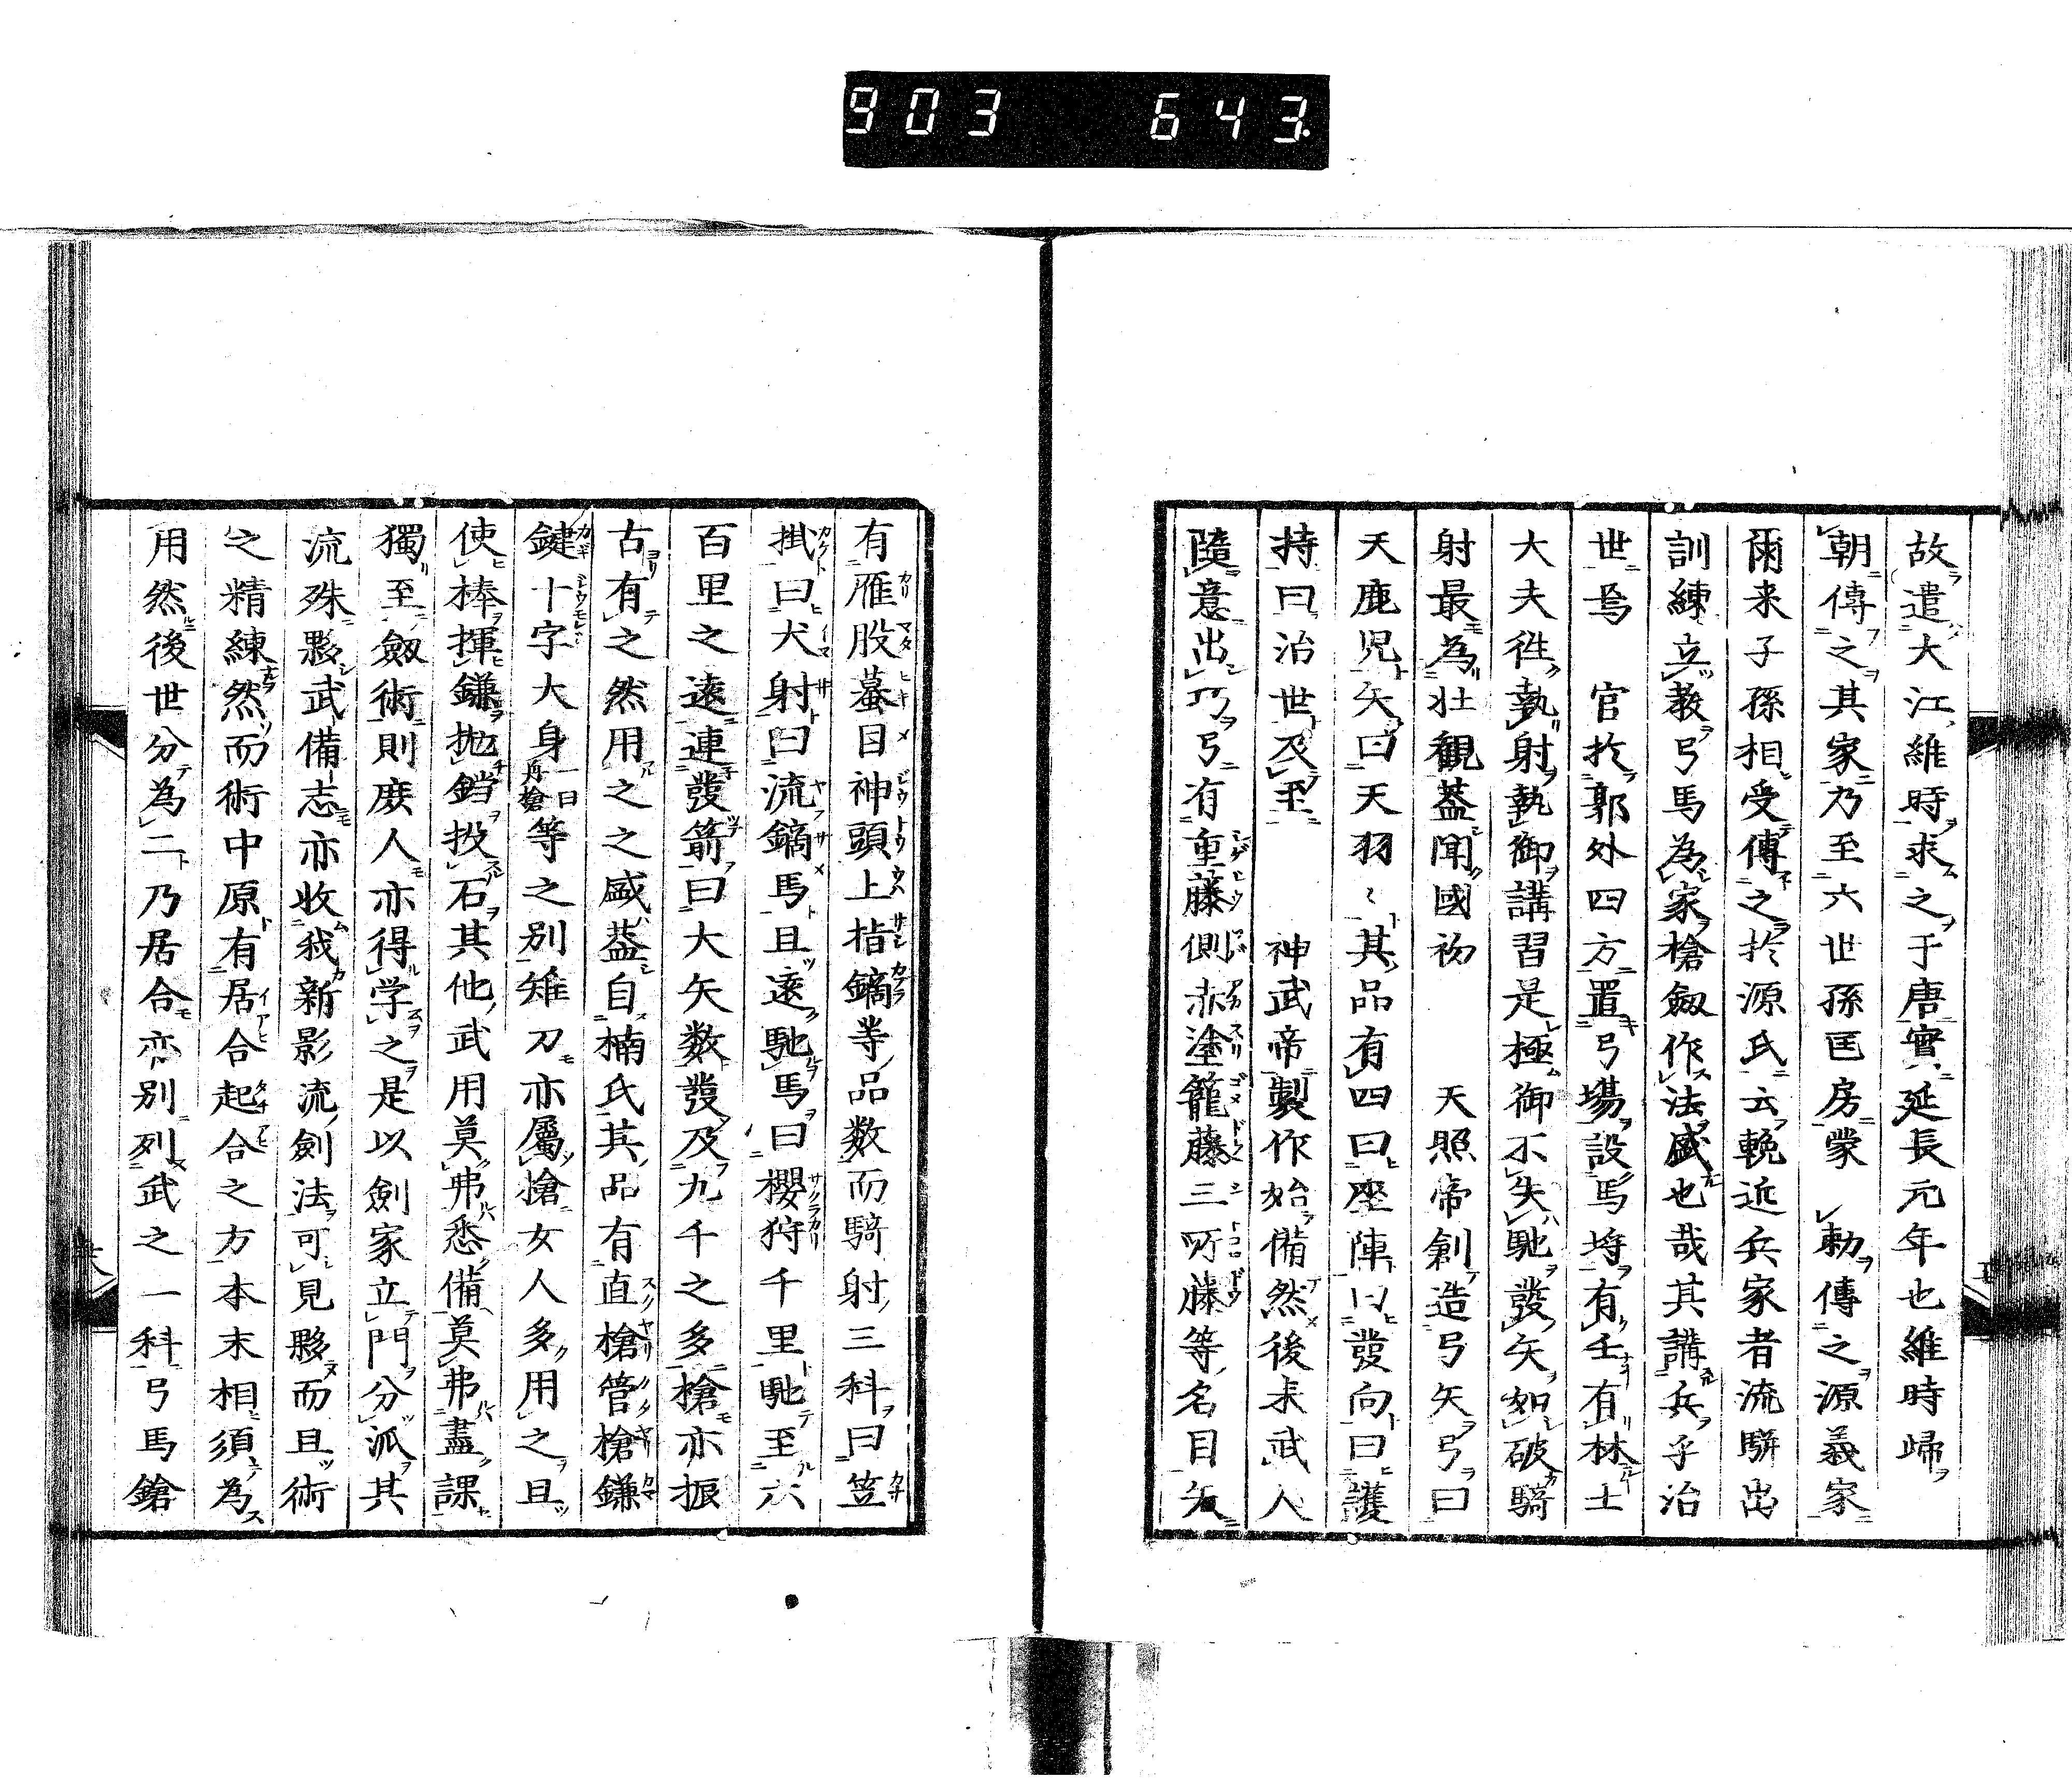 903 643
故遣大江維時求之于唐實延長元年也維時歸
朝傳之其家乃至六世孫匡房蒙 勅傳之源義家
爾来子孫相受傳之於源氏云輓近兵家者流駢出
訓練立教弓馬為家槍劔作法盛也哉其講兵乎治
世焉 官於郭外四方置弓場設馬埒有壬有林士
大夫徃執射執御講習是極御不失馳發矢如破騎
射最為壮観葢聞國初 天照帝創造弓矢弓曰
天鹿児矢曰天羽々其品有四曰座陣曰發向曰護
持曰治世及至 神武帝製作始備然後来武人
隨意出巧弓有重藤側赤塗籠藤三所藤等名目矢
有雁股蟇目神頭上指鏑等品数而騎射三科曰笠
掛曰犬射曰流鏑馬且遠馳馬曰櫻狩千里馳至六
百里之遠連發箭曰大矢数發及九千之多槍亦振
古有之然用之之盛葢自楠氏其品有直槍管槍鎌
鍵十字大身一曰舟槍等之別雉刀亦屬槍女人多用之且
使棒揮鎌抛鐺投石其他武用莫弗悉備莫弗盡課
獨至劔術則庶人亦得学之是以劍家立門分派其
流殊夥武備志亦收我新影流劍法可見夥而且術
之精練然而術中原有居合起合之方本末相須為
用然後世分為二乃居合亦別列武之一科弓馬鎗